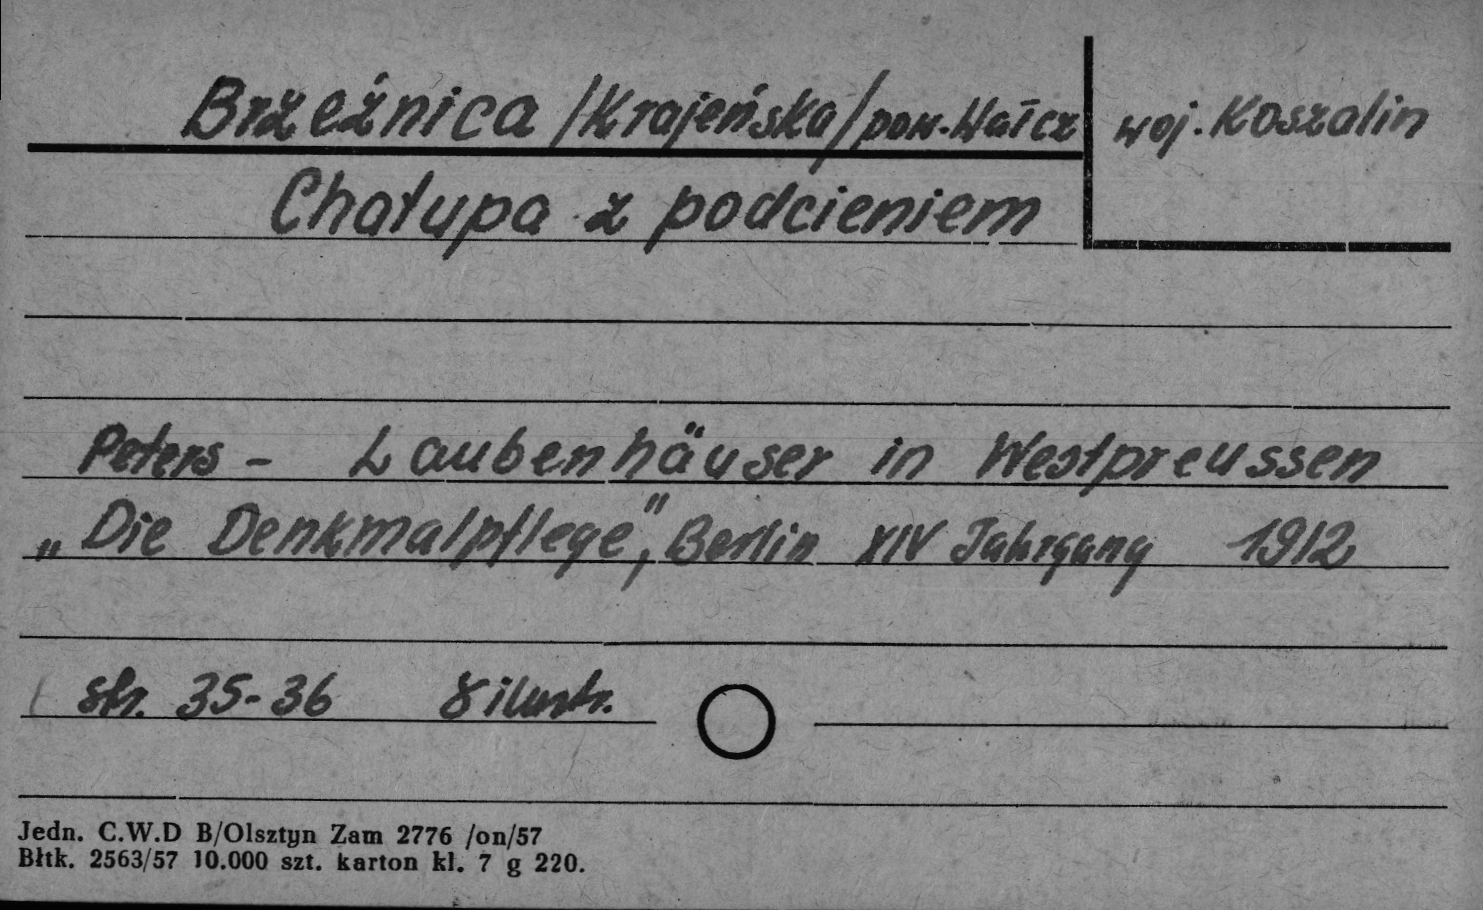 Brzeźnica /Krajeńska/ pow. Wałcz
woj. Koszalin
Chałupa z podcieniem
Peters - Laubenhäuser in Westpreussen
„Die Denkmalpflege”, Berlin XIV Jahrgang 1912
str. 35-36 8 ilustr.
Jedn. C.W.D B/Olsztyn Zam 2776 /on/57
Błtk. 2563/57 10.000 szt. karton kl. 7 g 220.